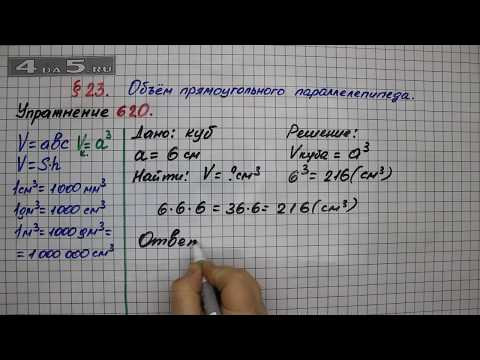 4DA5.RU
§ 23. Объём прямоугольного параллелепипеда.
Упражнение 620.
V = abc Vк. = a³
V = S·h
1см³ = 1000 мм³
1дм³ = 1000 см³
1м³ = 1000 дм³ =
= 1 000 000 см³
Дано: куб
a = 6 см
Найти: V = ? см³
Решение:
Vкуба = a³
6³ = 216 (см³)
6 · 6 · 6 = 36 · 6 = 216 (см³)
Ответ